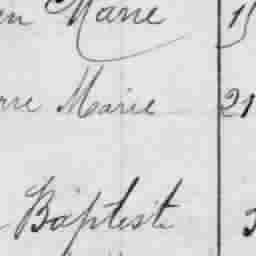 Marie 15
Marie 21
Baptiste